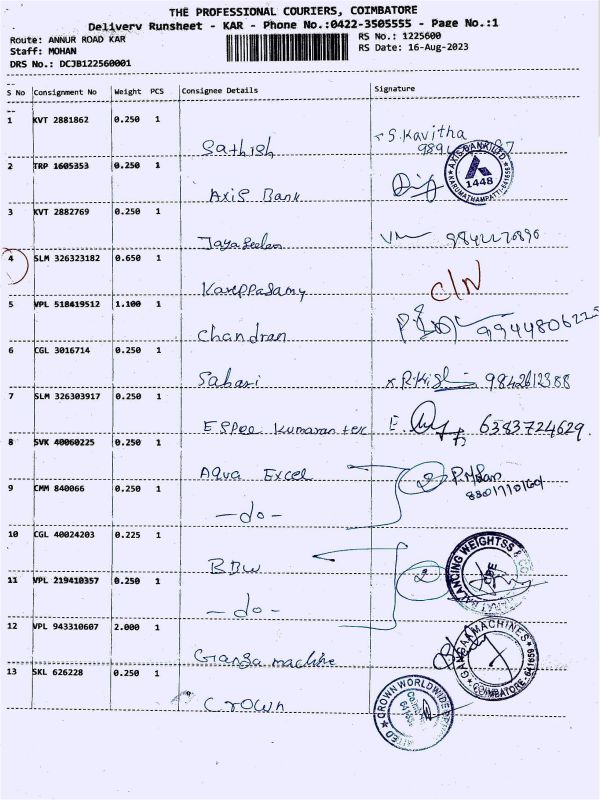 THE PROFESSIONAL COURIERS, COIMBATORE
Delivery Runsheet - KAR - Phone No.:0422-3505555 - Page No.:1
Route: ANNUR ROAD KAR
RS No.: 1225600
Staff: MOHAN
RS Date: 16-Aug-2023
DRS No.: DCJB122560001
S No Consignment No Weight PCS Consignee Details Signature
1 KVT 2881862 0.250 1
Sathish S.Kavitha
2 TRP 1605353 0.250 1
AXIS BANK LTD
1448
KARUMATHAMPATTI-641659
Axis Bank
3 KVT 2882769 0.250 1
Jayaseelan
4 SLM 326323182 0.650 1
Karuppasamy C/N
5 VPL 518419512 1.100 1
Chandran 9944806225
6 CGL 3016714 0.250 1
Sahari 9842612388
7 SLM 326303917 0.250 1
ESPEE Kumaran tex E. 6383724629.
8 SVK 40060225 0.250 1
Aqua Excel 2
9 CMM 840066 0.250 1
-do-
10 CGL 40024203 0.225 1
BBW 2
BALANCING WEIGHTSS &
11 VPL 219410357 0.250 1
-do-
12 VPL 943310607 2.000 1
Ganga machine
GANGAA MACHINES
COIMBATORE-641659
13 SKL 626228 0.250 1
Crown
CROWN WORLDWIDE